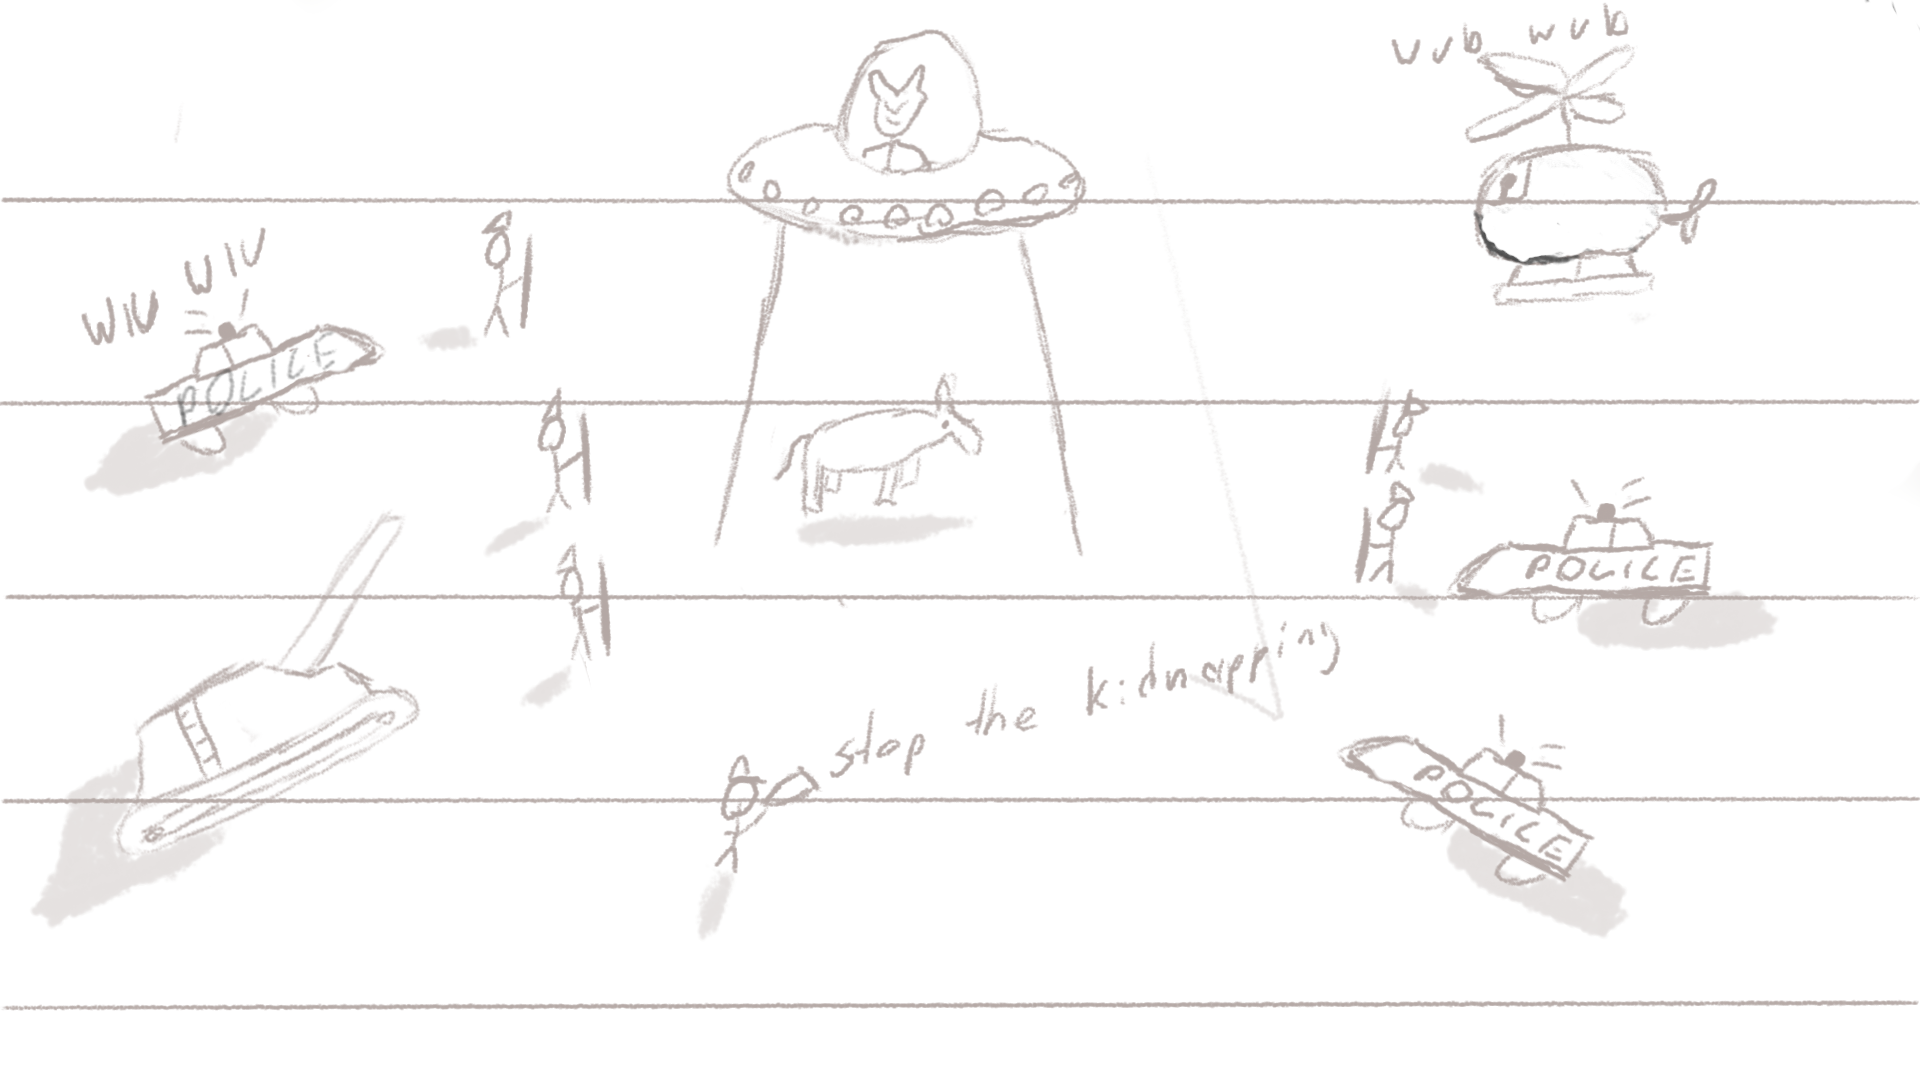 vub wub
WIU WIU
POLICE
POLICE
stop the kidnapping
POLICE